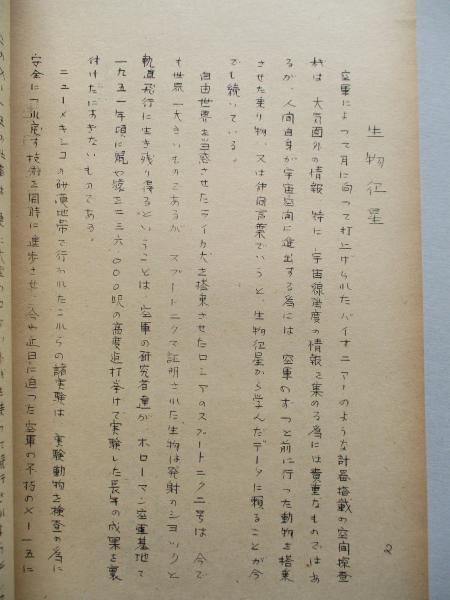 2
生物衛星
空軍によって月に向って打上げられたパイオニアーのような計器搭載の空間探査
機は、大気圏外の情報、特に、宇宙線強度の情報を集める為には貴重なものではあ
るが、人間自身が宇宙空間に進出する為には、空軍のずっと前に行った動物を搭乗
させた乗り物、又は仲間言葉でいうと、生物衛星から学んだデータに頼ることが今
でも続いている。
自由世界を当惑させたライカ犬を搭乗させたロシアのスプートニク二号は、今で
も世界一大きいものであるが、スプートニクで証明された、生物は発射のショックと
軌道飛行に生き残り得るということは、空軍の研究者達が、ホローマン空軍基地で
一九五一年頃に既や猿を二三六、〇〇〇呎の高度迄打挙げて実験した長年の成果を裏
付けたにすぎないものである。
ニューメキシコの砂漠地帯で行われたこれらの諸実験は、実験動物を検査の為に
安全につれ戻す技術を同時に進歩させ、今や近日に迫った空軍の不朽のX－一五に